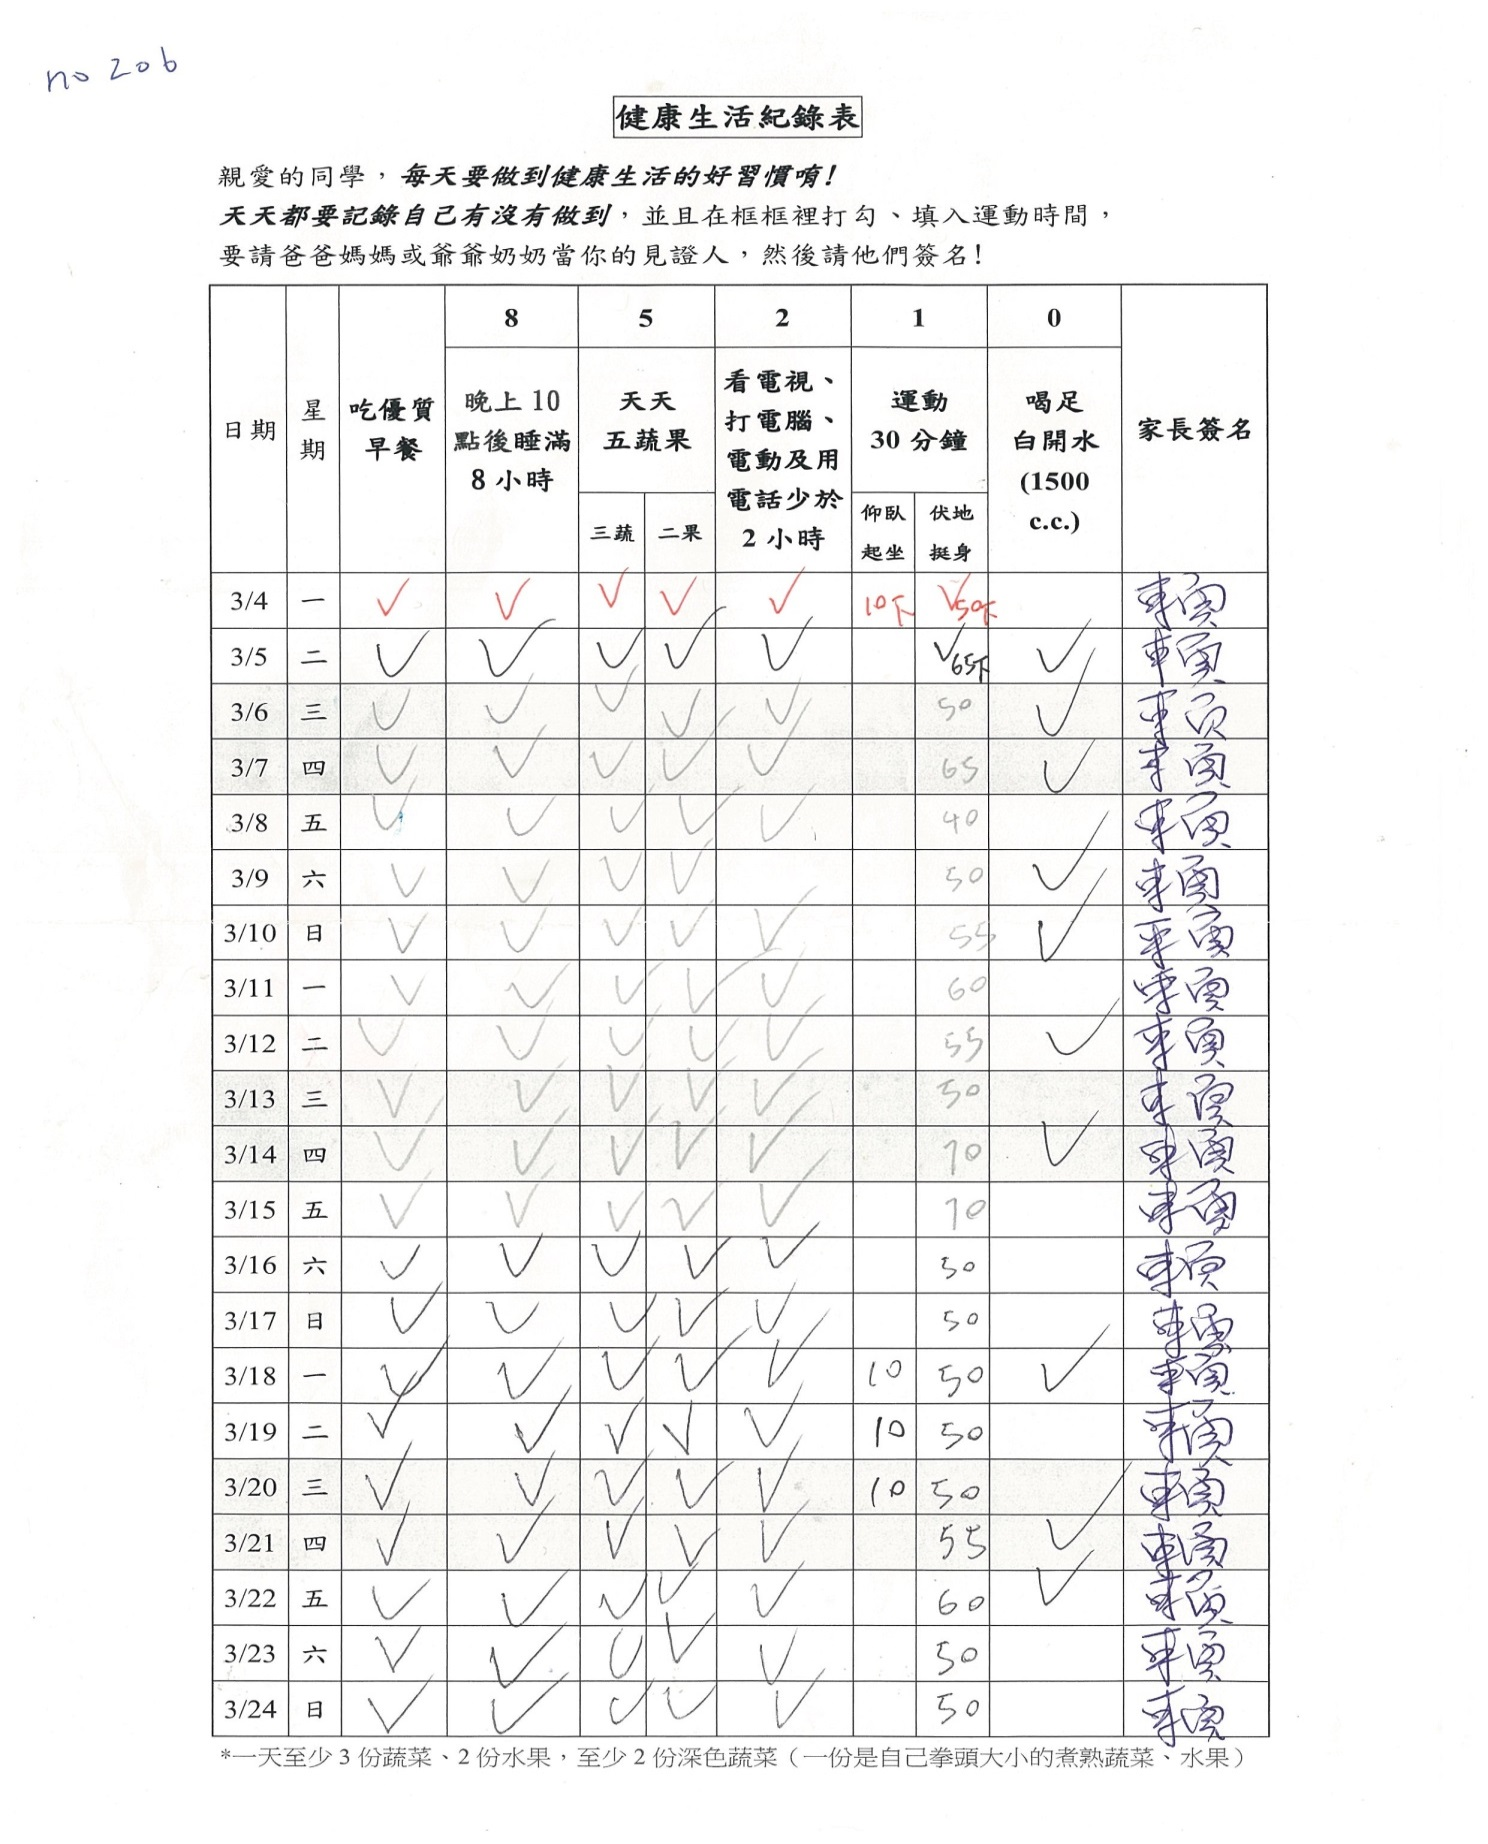 no 206
健康生活紀錄表
親愛的同學，每天要做到健康生活的好習慣唷!
天天都要記錄自己有沒有做到，並且在框框裡打勾、填入運動時間，
要請爸爸媽媽或爺爺奶奶當你的見證人，然後請他們簽名!
日期 星期 吃優質早餐 8 5 2 1 0 家長簽名
晚上 10 點後睡滿 8 小時 天天五蔬果 看電視、打電腦、電動及用電話少於 2 小時 運動 30 分鐘 喝足白開水 (1500 c.c.)
三蔬 二果 仰臥起坐 伏地挺身
3/4 一 ✓ ✓ ✓ ✓ ✓ 10下 ✓50下
3/5 二 ✓ ✓ ✓ ✓ ✓ ✓65下 ✓
3/6 三 ✓ ✓ ✓ ✓ ✓ 50 ✓
3/7 四 ✓ ✓ ✓ ✓ ✓ 65 ✓
3/8 五 ✓ ✓ ✓ ✓ ✓ 40
3/9 六 ✓ ✓ ✓ ✓ 50 ✓
3/10 日 ✓ ✓ ✓ ✓ ✓ 55 ✓
3/11 一 ✓ ✓ ✓ ✓ ✓ 60
3/12 二 ✓ ✓ ✓ ✓ ✓ 55 ✓
3/13 三 ✓ ✓ ✓ ✓ ✓ 50
3/14 四 ✓ ✓ ✓ ✓ ✓ 70 ✓
3/15 五 ✓ ✓ ✓ ✓ ✓ 70
3/16 六 ✓ ✓ ✓ ✓ ✓ 50
3/17 日 ✓ ✓ ✓ ✓ ✓ 50
3/18 一 ✓ ✓ ✓ ✓ ✓ 10 50 ✓
3/19 二 ✓ ✓ ✓ ✓ ✓ 10 50
3/20 三 ✓ ✓ ✓ ✓ ✓ 10 50
3/21 四 ✓ ✓ ✓ ✓ ✓ 55 ✓
3/22 五 ✓ ✓ ✓ ✓ ✓ 60 ✓
3/23 六 ✓ ✓ ✓ ✓ ✓ 50
3/24 日 ✓ ✓ ✓ ✓ ✓ 50
*一天至少 3 份蔬菜、2 份水果，至少 2 份深色蔬菜（一份是自己拳頭大小的煮熟蔬菜、水果）